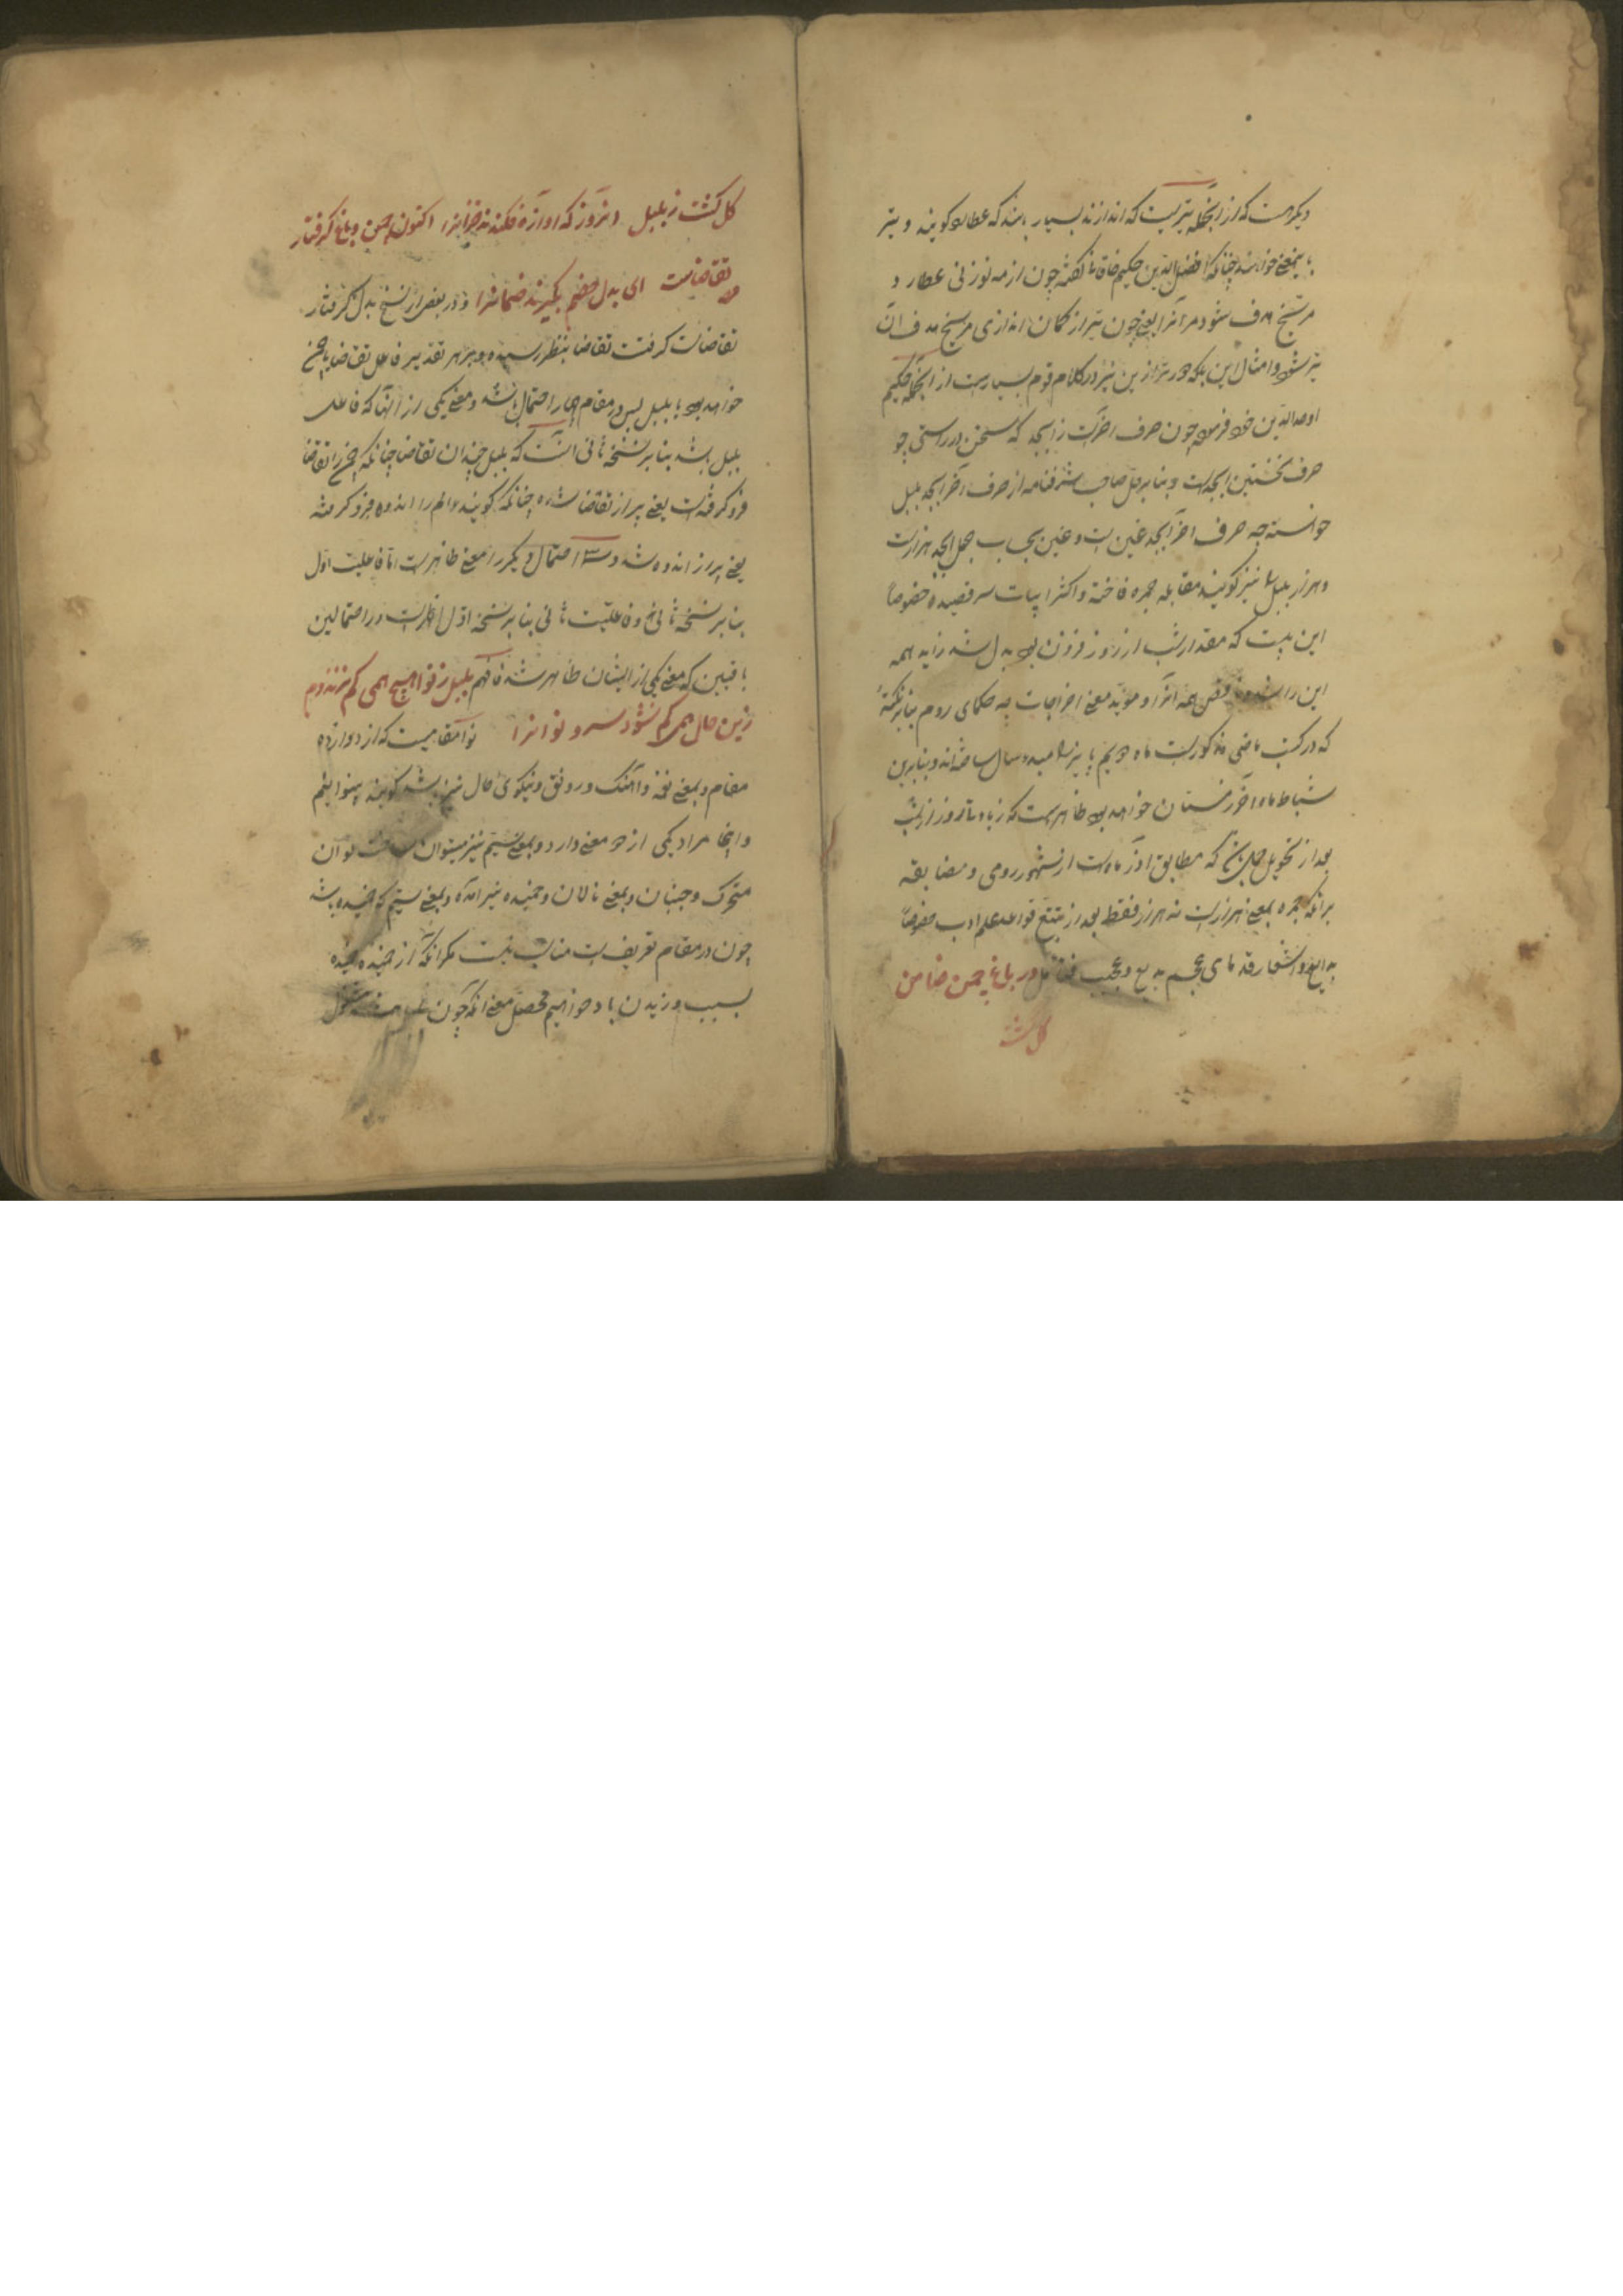 دیکر هست که از آنجمله تیریست که اندازند بسیار باشد که عطارد کویند و تیر
بمعنی خوانند چنانکه افضل الدین حکیم خاقانی کفته چون از مه نو زنی عطارد
مریخ هدف شود مر آنرا یعنی چون تیر از کمان اندازی مریخ هدف آن
تیر شود و امثال این بلکه دورتر ازین نیز در کلام قوم بسیارست از آنجمله حکیم
اوحد الدین خود فرموده چون حرف آخرست ز ابجد که سخن در راستی چو
حرف نخستین ابجدست و بنابر قول صاحب شرفنامه از حرف آخر ابجد بلبل
خواسته چه حرف آخر ابجد غین است و غین بحساب جمل ابجد هزارست
و هزار بلبل را نیز کویند مقابله جمره فاخته و اکثر ابیات سر قصیده خصوصاً
این بیت که مقدار شب از روز فزون بود بدل شد زاید همه
این را شد همه آنرا و مؤید معنی اخراجات چه حکمای روم بنابر نکتهٔ
که در کتب ماضی مذکورست ماه دویم پاییز را مبدء سال ساخته‌اند و بنابرین
شباط ماه آخر زمستان خواهد بود ظاهرست که زیادتی روز از شب
بعد از تحویل حمل که مطابق آذر ماهست از شهور رومی و مضایقه
برآنکه جمره بمعنی هزارست نه هزار فقط بعد از تتبع قواعد علم ادب خصوصاً
بدایع و اشعار قدمای عجم بدیع و عجیب در باغ چمن ضامن
کل کشت
کل کشت ز بلبل آنروز که آوازه فکندند خزانرا اکنون چمن و باغ کرفتار
تقاضاست ای بدل خصم بکیرند ضمانرا و در بعضی از نسخ بدل کرفتار
تقاضاست کرفت تقاضا بنظر رسیده و بر هر تقدیر فاعل تقاضا یا چمن
خواهد بود یا بلبل پس در مقام چهار احتمال باشد و معنی یکی از آنها که فاعل
بلبل باشد بنابر نسخه ثانی آنست که بلبل چندان تقاضا چنانکه چمن را تقاضا
فرو کرفته است یعنی پر از تقاضا شده چنانکه کویند عالم را اندوه فرو کرفته
یعنی پر از اندوه شد و سه احتمال دیکر را معنی ظاهرست اما فاعلیت اول
بنابر نسخه ثانی و فاعلیت ثانی بنابر نسخه اول اظهرست در احتمالین
باقیین که معنی یکی از ایشان ظاهر شد فافهم بلبل ز نوا هیچ همی کم نزند دم
زین حال همی کم نشود سرو نوانرا نوا مقامیست که از دوازده
مقام و بمعنی نغمه و آهنک و رونق و نیکوی حال نیز باشد کویند بینوا ییم
و اینجا مراد یکی از دو معنی دارد و بمعنی سیم نیز میتوان نوان
متحرک و جنبان و بمعنی نالان و خمیده نیز آمده و بمعنی سیم که خمیده باشد
چون در مقام تعریف است مناسب نیست مکر آنکه از خمیده
بسبب وزیدن باد خواهیم محصل معنی آنکه چون